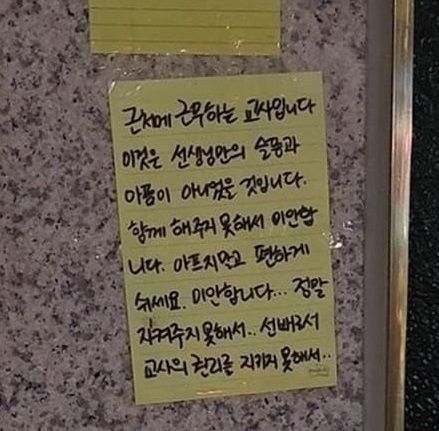 근처에 근무하는 교사입니다
이것은 선생님만의 슬픔과
아픔이 아니었을 것입니다.
함께 해주지 못해서 미안합
니다. 아프지말고 편하게
쉬세요. 미안합니다... 정말
지켜주지 못해서.. 선배로서
교사의 권리를 지키지 못해서..